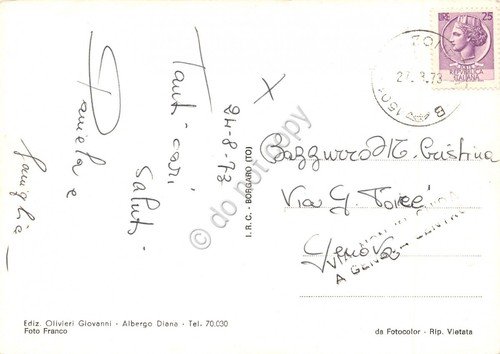 24-8-73
Tanti cari
saluti
Daniela e
famiglia
Ediz. Olivieri Giovanni - Albergo Diana - Tel. 70.030
Foto Franco
I.R.C. - BORGARO (TO)
do not copy
LIRE 25
REPUBBLICA
ITALIANA
73
Bazzurro M. Cristina
Via G.
Genova
A GENOVA CENTRO
da Fotocolor - Rip. Vietata